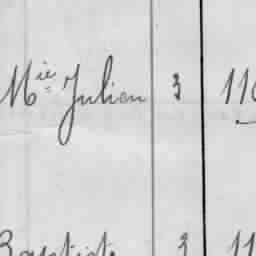 Mie Julien 3 110
Baptiste 3 11